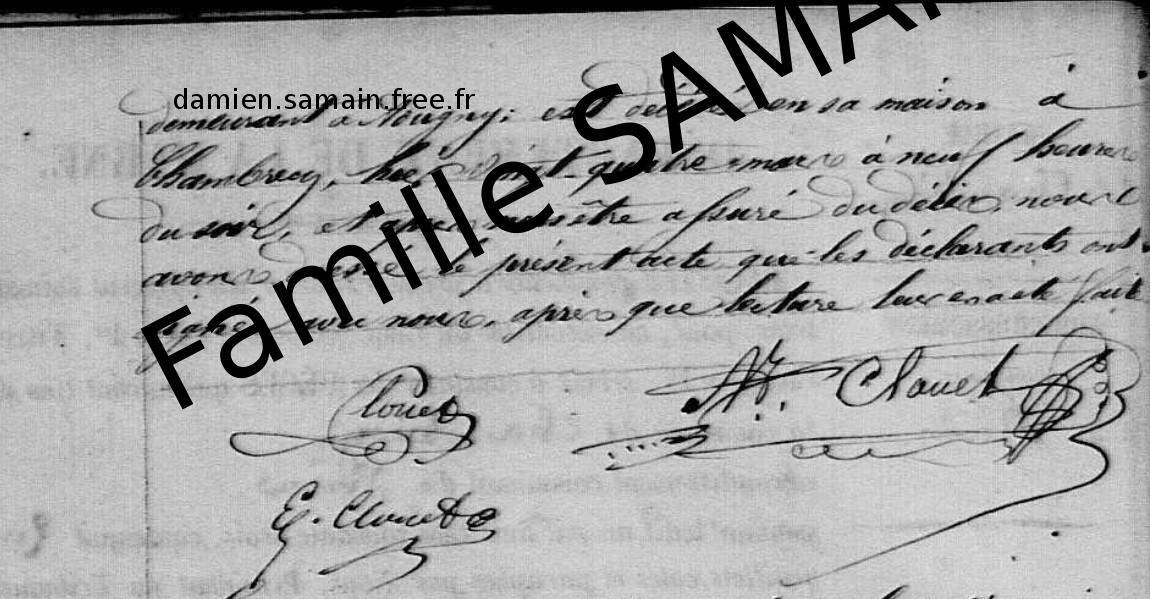 Famille SAMAIN
damien.samain.free.fr
demeurant à Nogny; est décédé en sa maison à
Chambrecy, hier vingt-quatre mars à neuf heures
du soir, et après nous être assuré du décès, nous
avons dressé le présent acte que les déclarants ont
signé avec nous, après que lecture leur en a été faite
Clouet
N. Clouet
E. Clouet